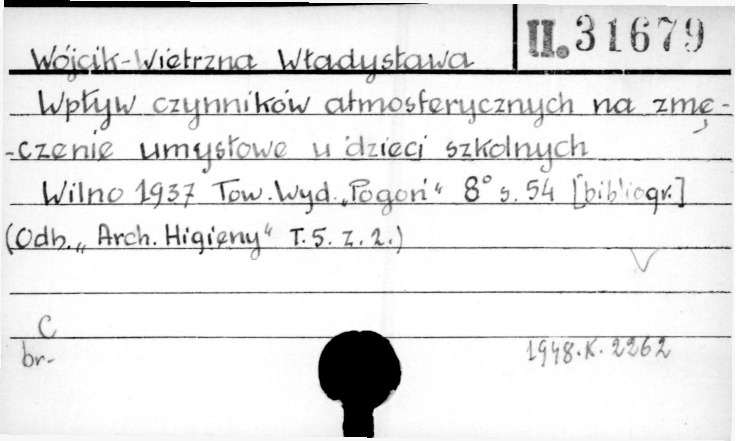 II. 31679
Wójcik-Wietrzna Władysława
Wpływ czynników atmosferycznych na zmę-
-czenie umysłowe u dzieci szkolnych
Wilno 1937 Tow. Wyd. „Pogoń" 8° s. 54 [bibliogr.]
(Odb. „Arch. Higieny" T. 5. z. 2.)
C
br.
1948. K. 2262